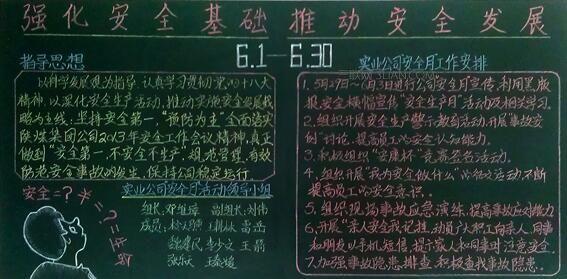 强化安全基础 推动安全发展
6.1—6.30
指导思想
以科学发展观为指导,认真学习贯彻党的十八大
精神,以深化安全生产活动,推动实施安全发展战
略为主线,坚持安全第一,"预防为主"全面落实
陕煤集团公司2013年安全工作会议精神,真正
做到"安全第一,不安全不生产",规范管理,有效
防范安全事故的发生,保持公司稳定运行。
安全=?
?=生命
实业公司安全月活动领导小组
组长:邓 副组长:刘伟
成员:
李少文 王鹃
实业公司安全月工作安排
1.5月27日~6月3日进行公司"安全月"宣传,利用黑板
报、安全横幅宣传"安全生产月"活动及相关学习。
2.组织开展安全生产警示教育活动,开展"事故案
例"讨论,提高员工的安全认知能力。
3.积极组织"安康杯"竞赛签名活动。
4.组织开展"我为安全做什么"的签名活动,不断
提高员工的安全意识。
5.组织现场事故应急演练,提高事故应对能力
6.开展"亲人安全我记挂,动员广大职工向亲人、同事
和朋友以手机短信,提示家人和同事时注意安全。
7.加强事故隐患排查和核查我事故隐患。